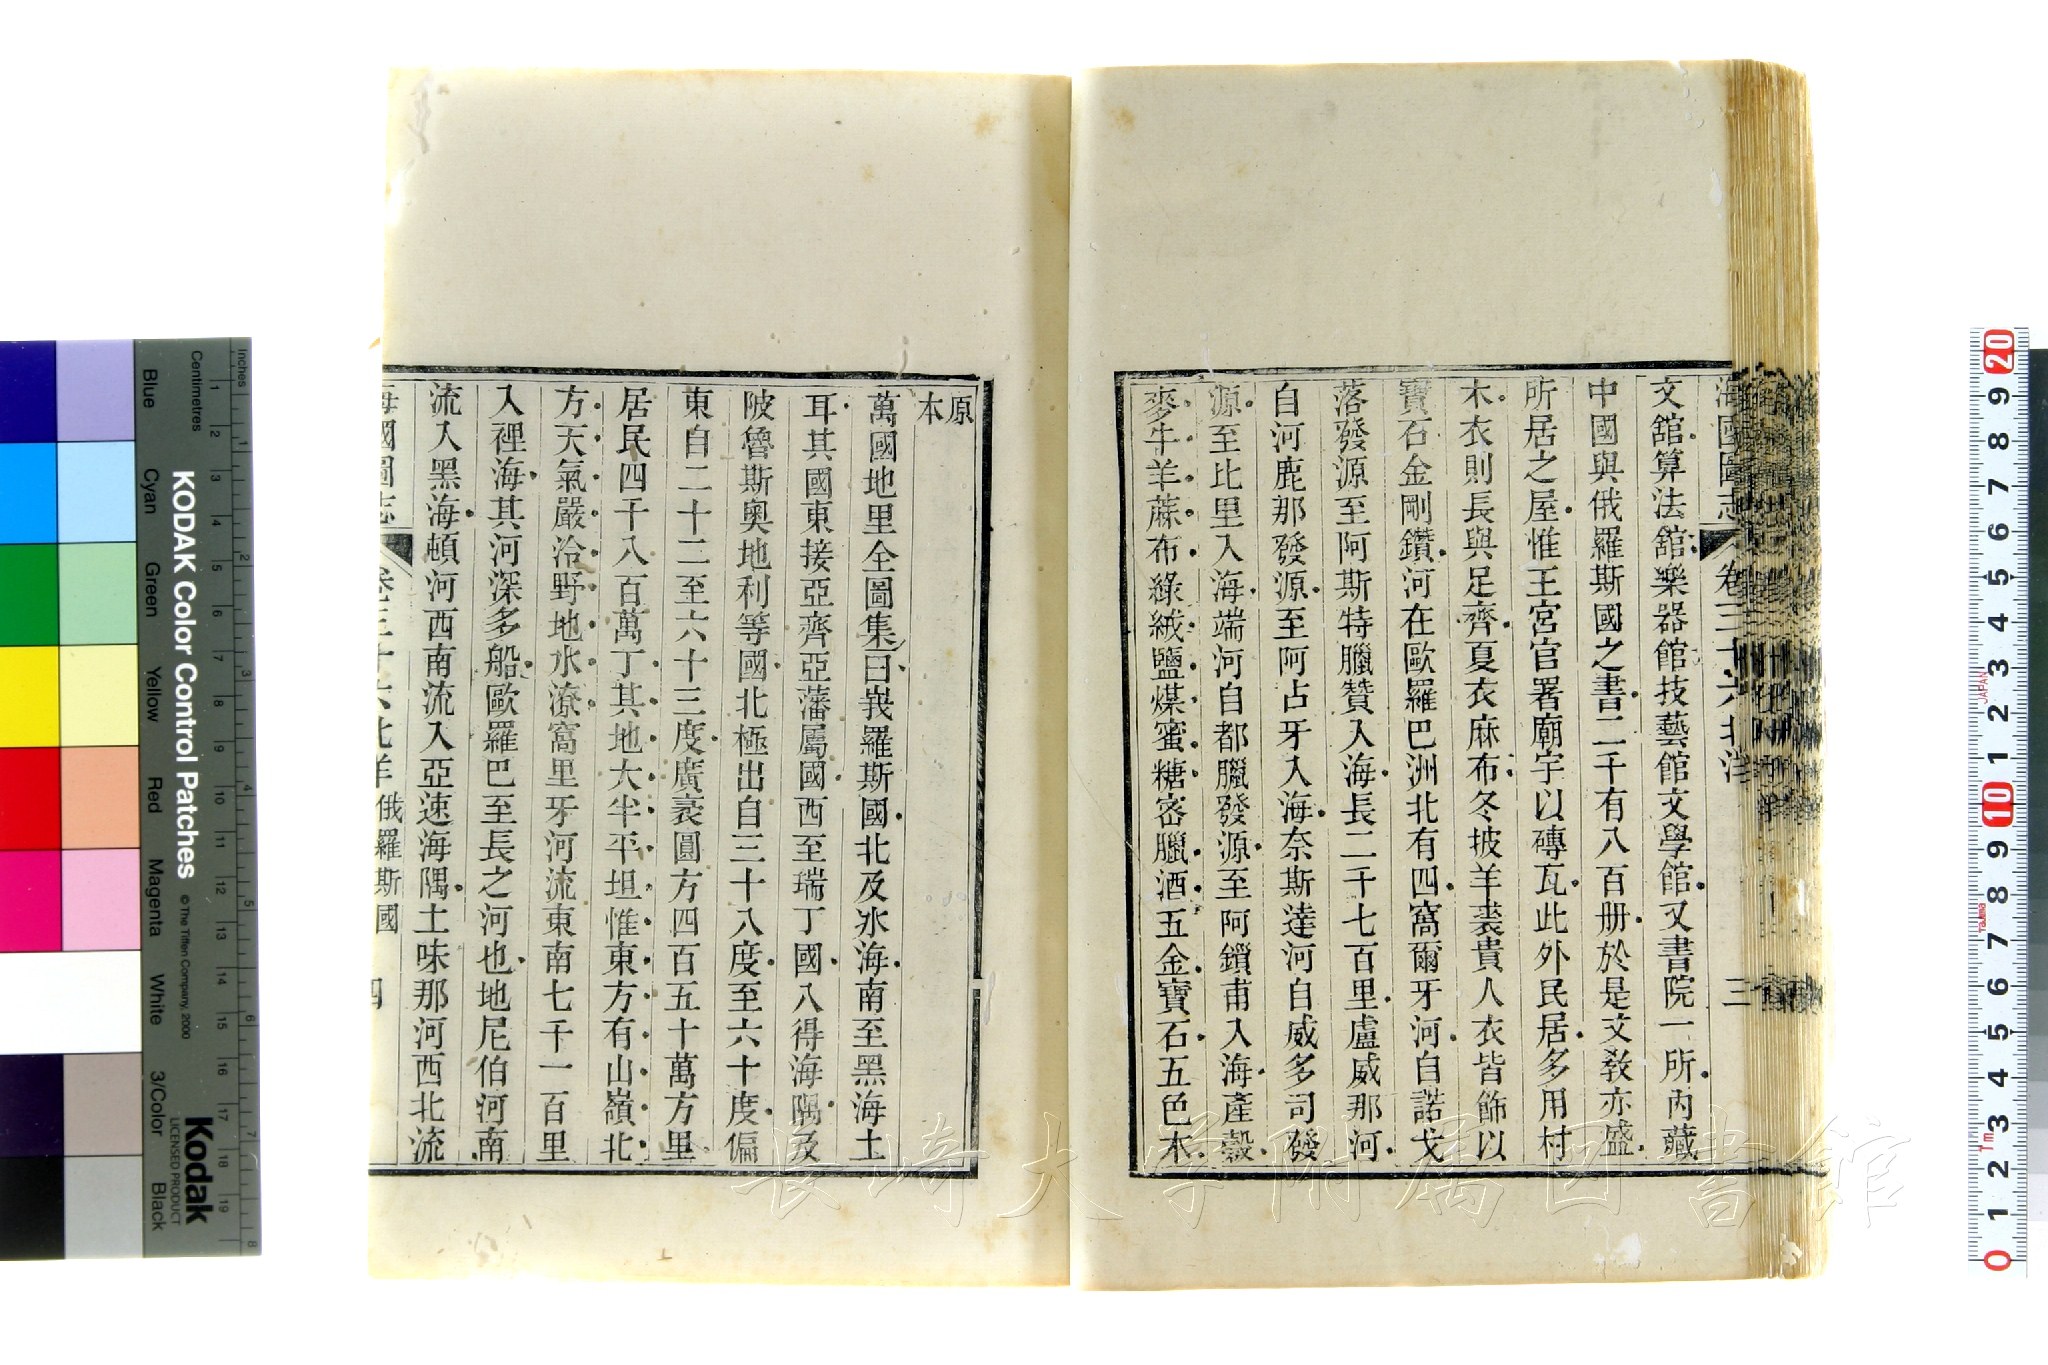 海國圖志 卷三十六 北洋 三
文館算法館樂器館技藝館文學館又書院一所內藏
中國與俄羅斯國之書二千有八百册於是文敎亦盛
所居之屋惟王宮官署廟宇以磚瓦此外民居多用村
木衣則長與足齊夏衣麻布冬披羊裘貴人衣皆飾以
寶石金剛鑽河在歐羅巴洲北有四窩爾牙河自諾戈
落發源至阿斯特臘贊入海長二千七百里盧威那河
自河鹿那發源至阿占牙入海奈斯達河自威多司發
源至比里入海端河自都臘發源至阿鎖甫入海產穀
麥牛羊蔴布綠絨鹽煤蜜糖密臘酒五金寶石五色木
原本
萬國地里全圖集曰峩羅斯國北及氷海南至黑海土
耳其國東接亞齊亞藩屬國西至瑞丁國八得海隅及
陂魯斯奧地利等國北極出自三十八度至六十度偏
東自二十二至六十三度廣袤圓方四百五十萬方里
居民四千八百萬丁其地大半平坦惟東方有山嶺北
方天氣嚴冾野地水潦窩里牙河流東南七千一百里
入裡海其河深多船歐羅巴至長之河也地尼伯河南
流入黑海頓河西南流入亞速海隅土味那河西北流
海國圖志 卷三十六 北羊 俄羅斯國 四
KODAK Color Control Patches
© The Tiffen Company, 2000
Kodak
LICENSED PRODUCT
Inches
Centimetres
Blue Cyan Green Yellow Red Magenta White 3/Color Black
1 2 3 4 5 6 7 8 9 10 11 12 13 14 15 16 17 18 19
1 2 3 4 5 6 7 8
20 9 8 7 6 5 4 3 2 1 10 9 8 7 6 5 4 3 2 1 0
JAPAN
1m
長崎大学附属図書館